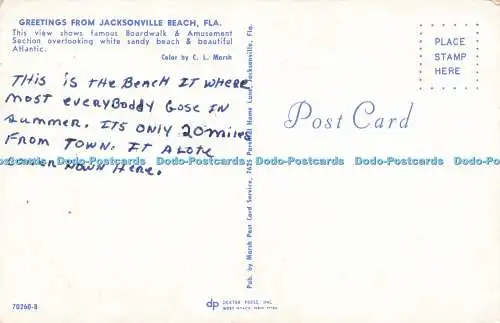 GREETINGS FROM JACKSONVILLE BEACH, FLA.
This view shows famous Boardwalk & Amusement
Section overlooking white sandy beach & beautiful
Atlantic.
Color by C. L. Marsh
THIS IS THE BEACH IT WHERE
MOST EVERYBODDY GOSE IN
SUMMER. ITS ONLY 20 MILES
FROM TOWN. IT A LOTE
DOWN HERE.
PLACE
STAMP
HERE
Post Card
Dodo-Postcards Dodo-Postcards Dodo-Postcards Dodo-Postcards Dodo-Postcards
Pub. by Marsh Post Card Service, 7625 Jacksonville, Fla.
70260-B
dp DEXTER PRESS, INC.
WEST NYACK, NEW YORK